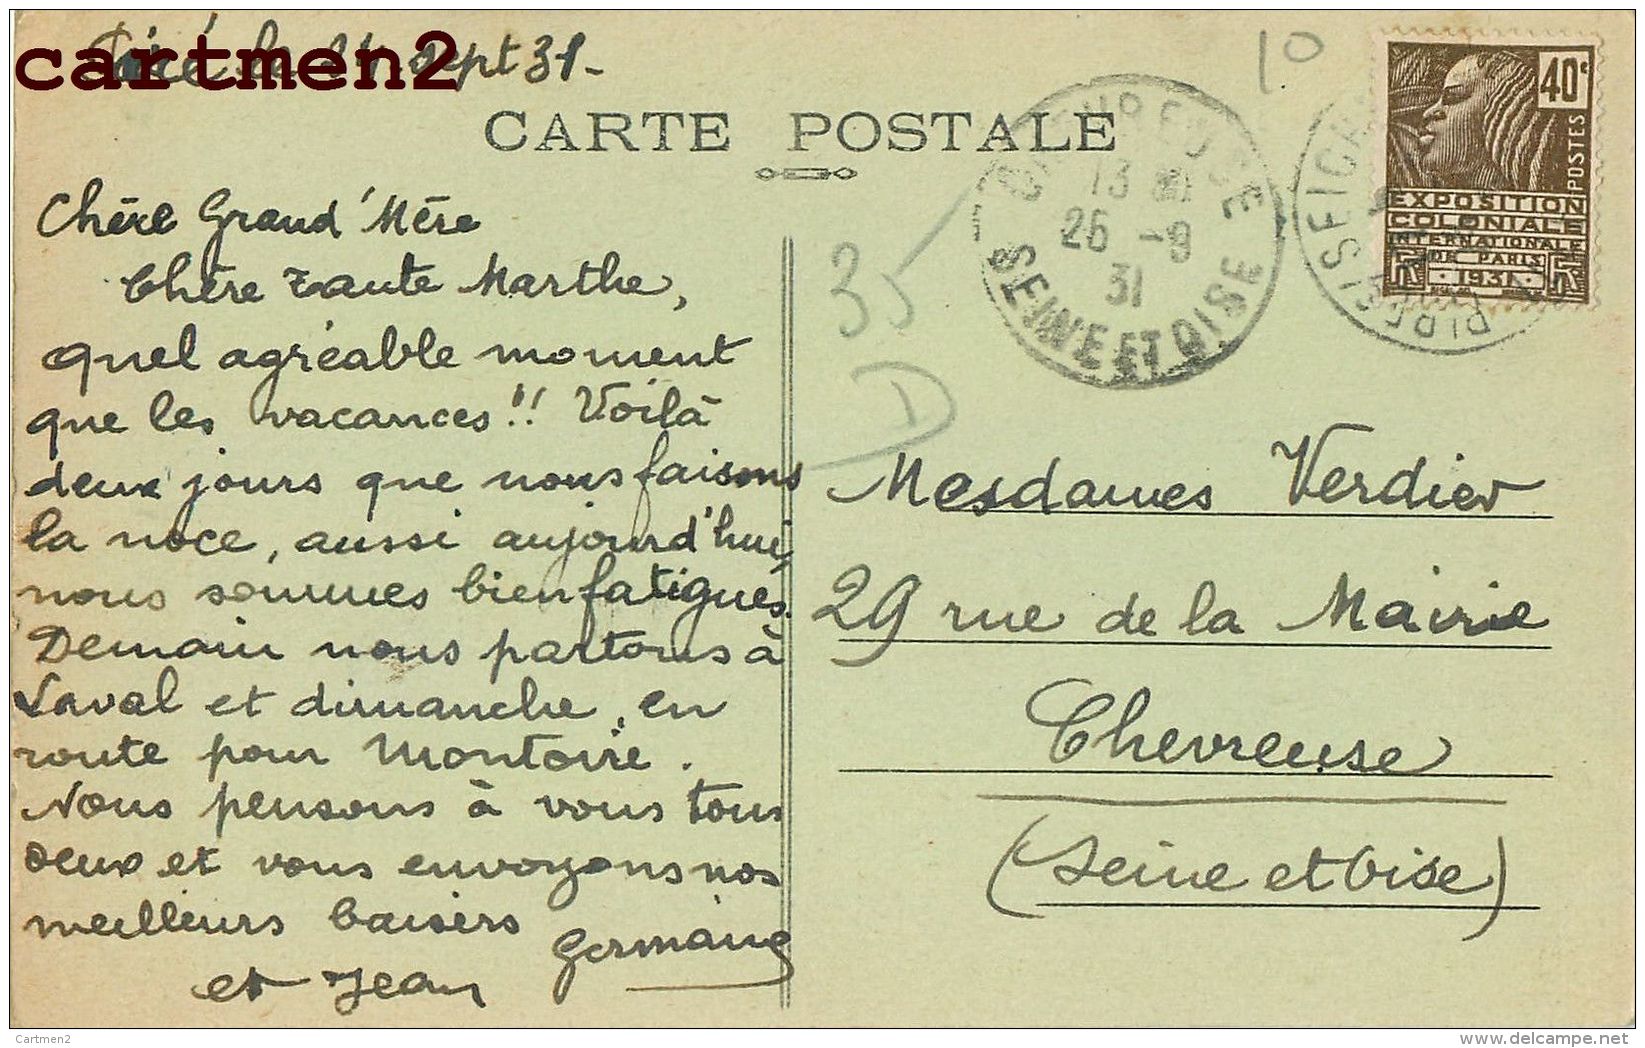 cartmen2
le 24 sept 31-
CARTE POSTALE
Chère Grand'Mère
Chère tante Marthe,
quel agréable moment
que les vacances!! Voilà
deux jours que nous faisons
la noce, aussi aujourd'hui,
nous sommes bien fatigués.
Demain nous partons à
Laval et dimanche, en
route pour Montoire.
Nous pensons à vous tous
deux et vous envoyons nos
meilleurs baisers Germaine
et Jean
10
35
D
CHEVREUSE
13
26 -9
31
SEINE ET OISE
40c
POSTES
EXPOSITION
COLONIALE
INTERNATIONALE
DE PARIS
1931
Mesdames Verdier
29 rue de la Mairie
Chevreuse
(Seine et Oise)
Cartmen2
delcampe.net